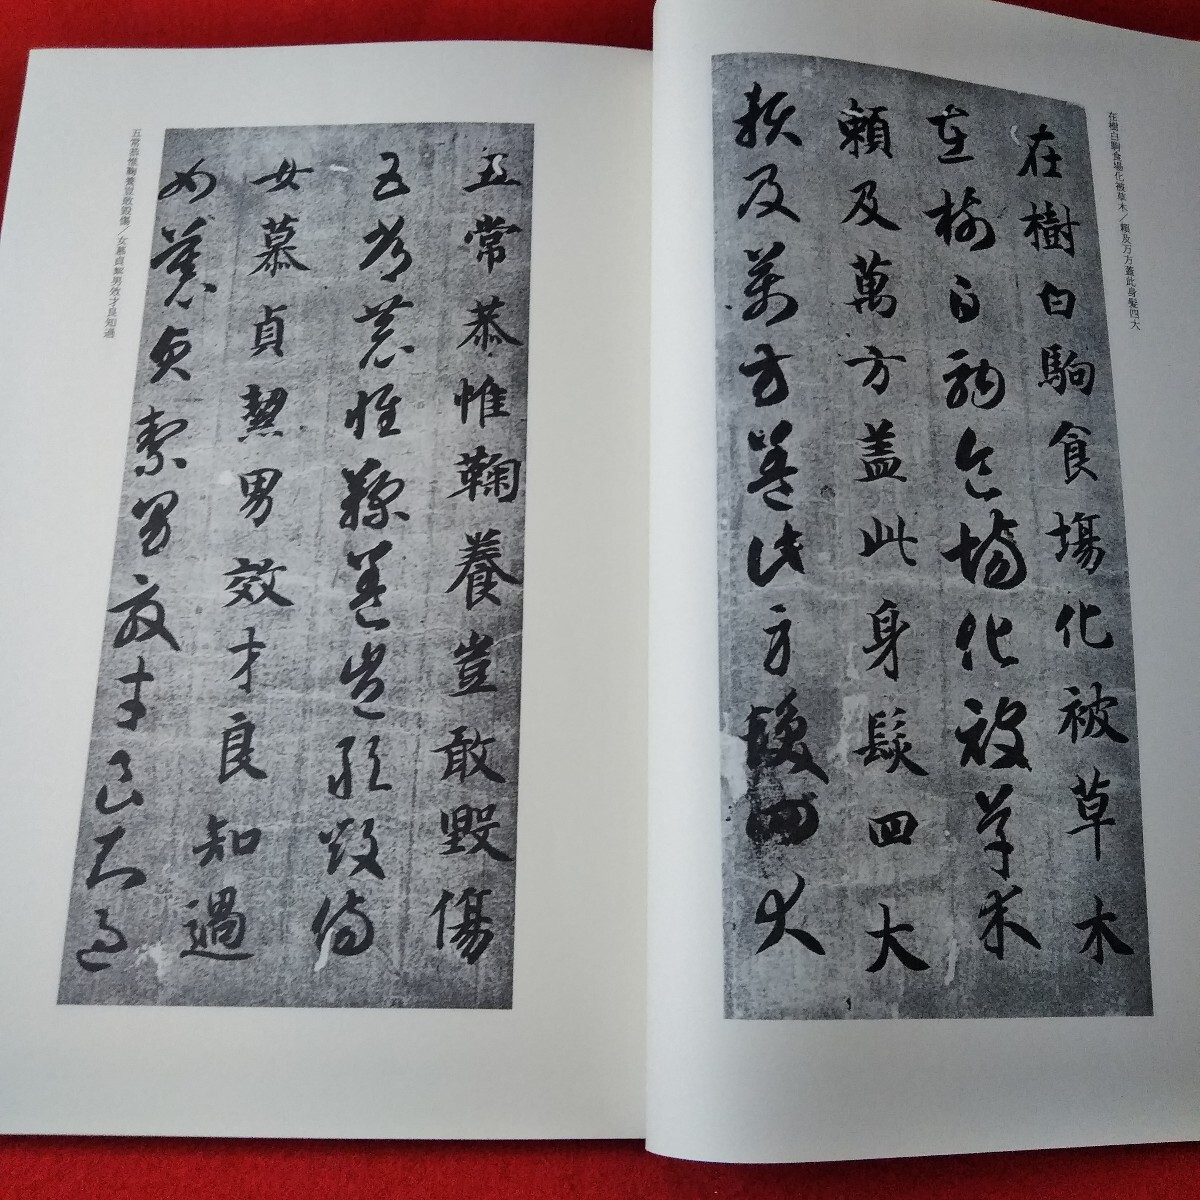 在樹白駒食場化被草木／賴及万方蓋此身髮四大
在樹白駒食場化被草木
在樹白駒食場化被草木
賴及萬方盖此身髮四大
賴及萬方盖此身髮四大
五常恭惟鞠養豈敢毀傷
五常恭惟鞠養豈敢毀傷
女慕貞絜男效才良知過
女慕貞絜男效才良知過
五常恭惟鞠養豈敢毀傷／女慕貞絜男效才良知過